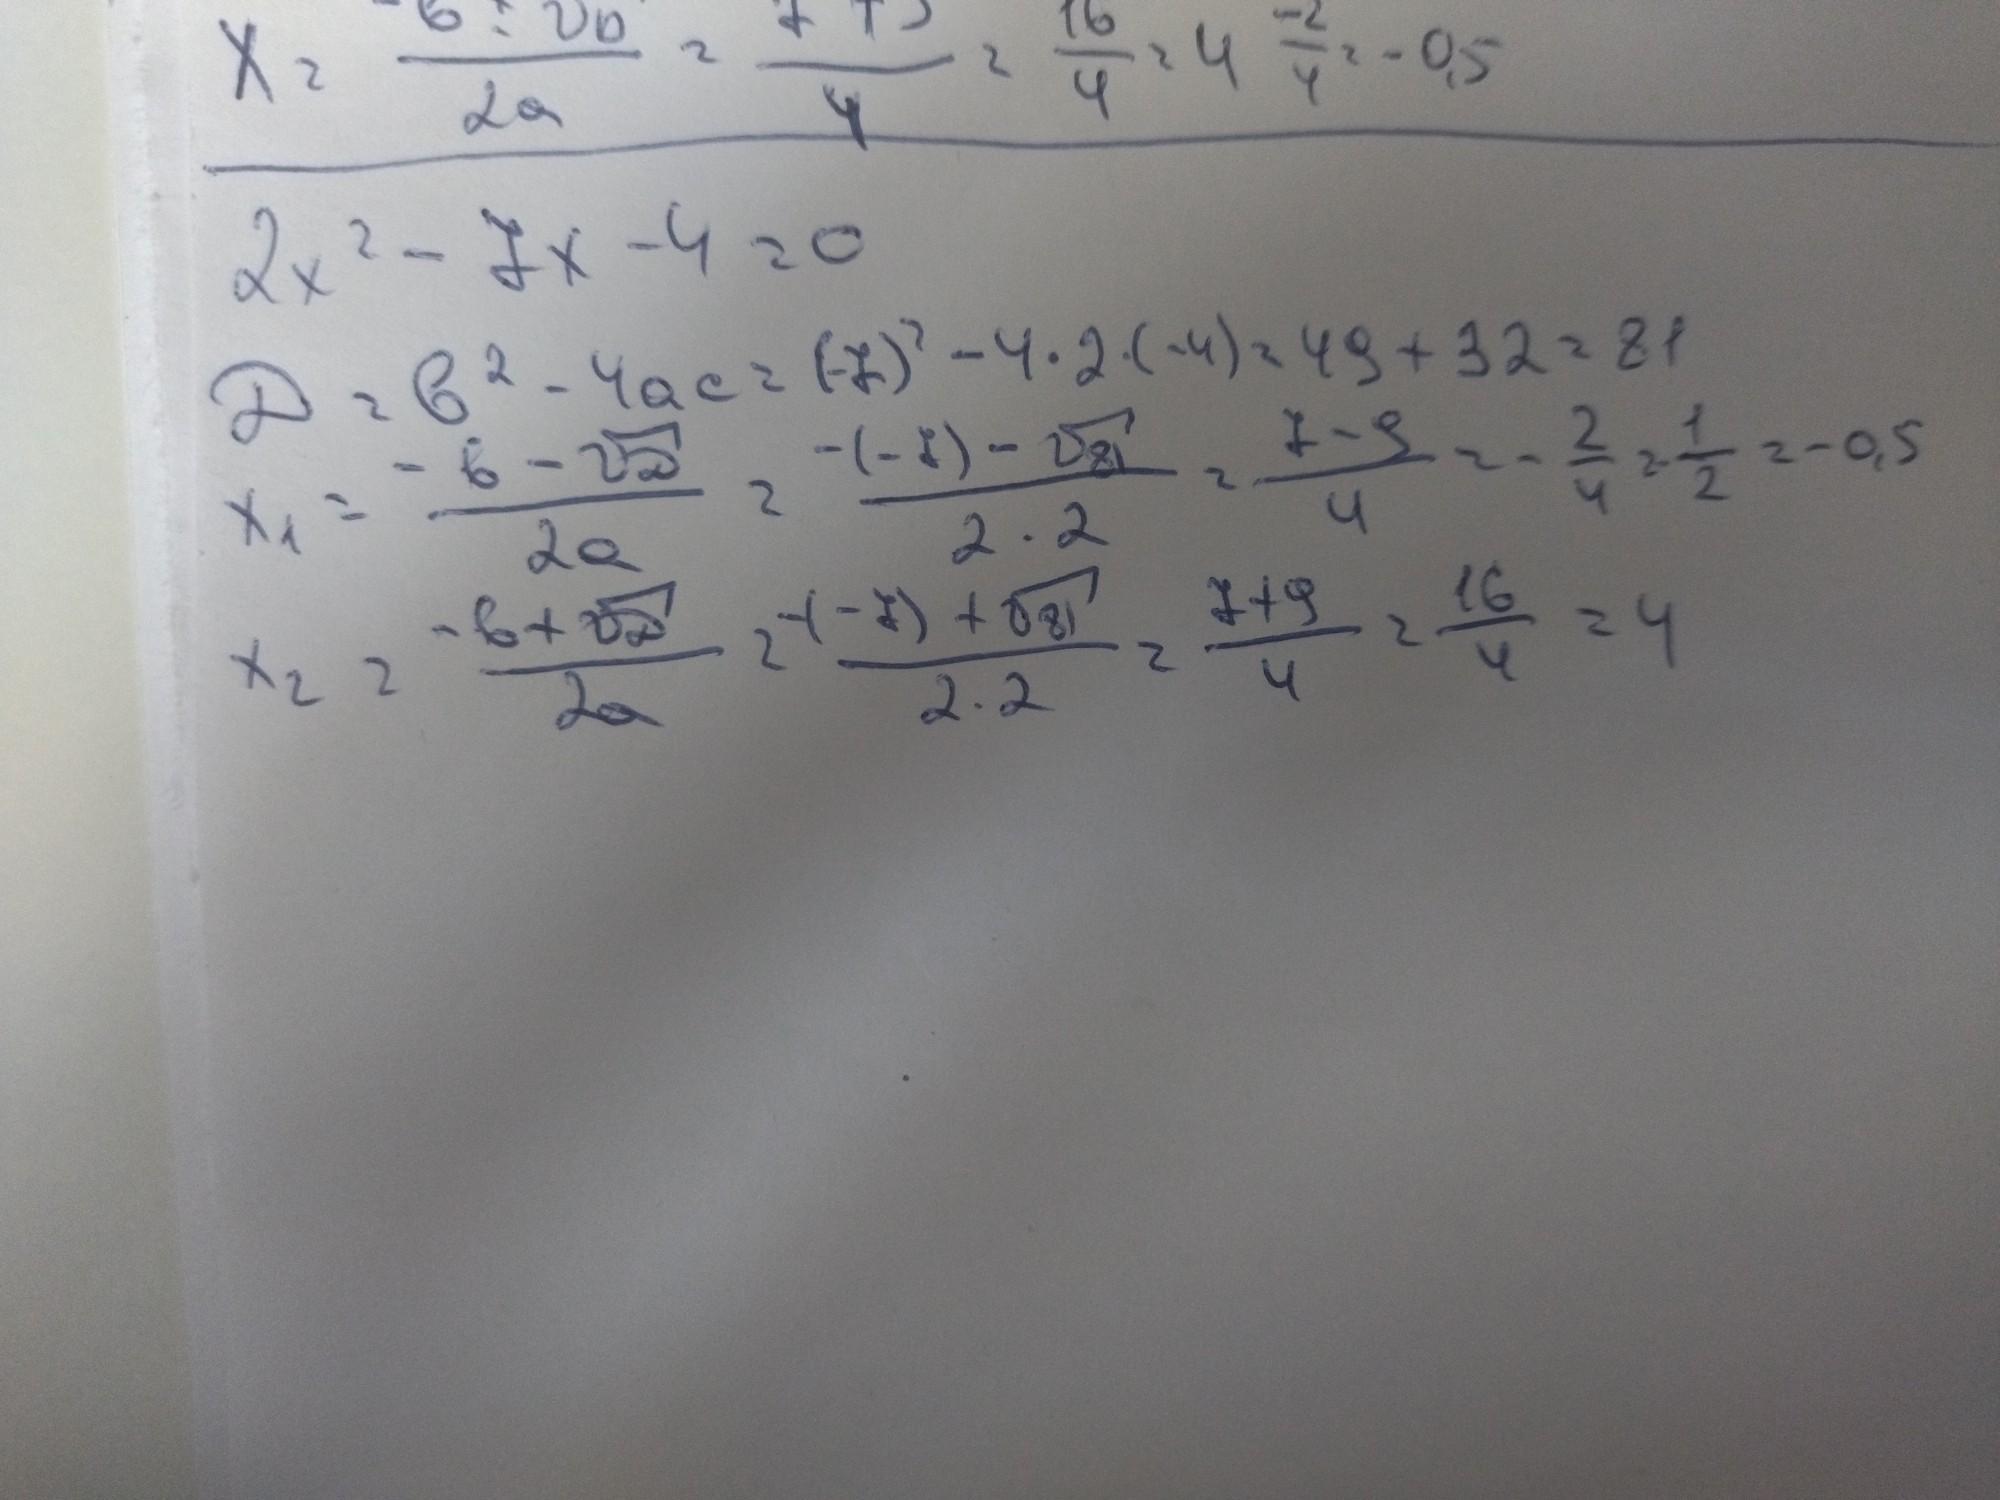 x = (-b ± √D)/(2a) = (7 ± 9)/4 = 16/4 = 4 -2/4 = -0,5
2x² - 7x - 4 = 0
D = b² - 4ac = (-7)² - 4·2·(-4) = 49 + 32 = 81
x₁ = (-b - √D)/(2a) = (-(-7) - √81)/(2·2) = (7 - 9)/4 = -2/4 = -1/2 = -0,5
x₂ = (-b + √D)/(2a) = (-(-7) + √81)/(2·2) = (7 + 9)/4 = 16/4 = 4